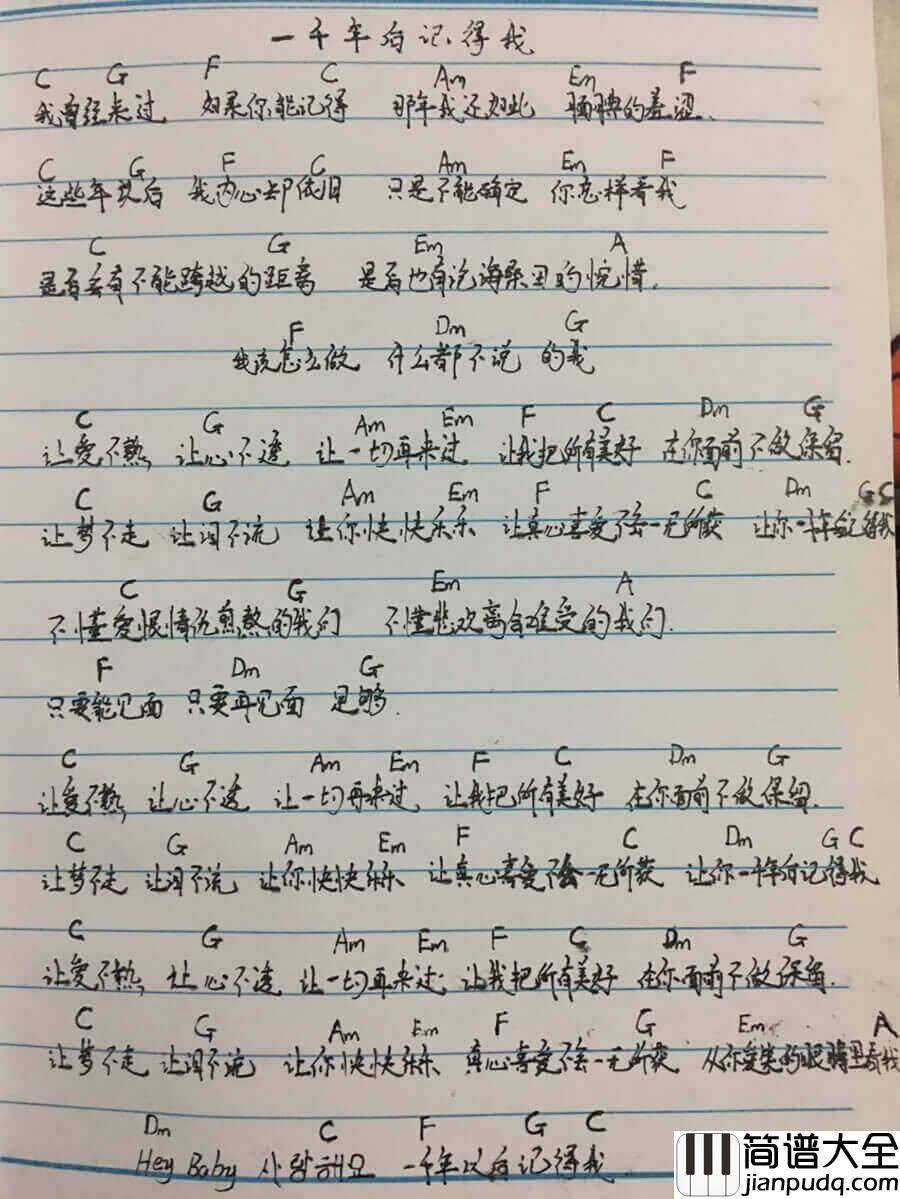 一千年后记得我
C G F C Am Em F
我曾经来过 如果你能记得 那年我还如此 腼腆的羞涩.
C G F C Am Em F
这些年以后 我内心却依旧 只是不能确定 你怎样看我
C G Em A
是否会有不能跨越的距离 是否也有沧海桑田的惋惜.
F Dm G
我该怎么做 什么都不说 的我
C G Am Em F C Dm G
让爱不熬 让心不遥 让一切再来过 让我把所有美好 在你面前不做保留.
C G Am Em F C Dm G C
让梦不走 让泪不流 让你快快乐乐 让真心喜爱不会一无所获 让你一千年后记得我
C G Em A
不懂爱恨情仇煎熬的我们 不懂悲欢离合难受的我们.
F Dm G
只要能见面 只要再见面 足够.
C G Am Em F C Dm G
让爱不熬 让心不遥 让一切再来过 让我把所有美好 在你面前不做保留.
C G Am Em F C Dm G C
让梦不走 让泪不流 让你快快乐乐 让真心喜爱不会一无所获 让你一千年后记得我
C G Am Em F C Dm G
让爱不熬 让心不遥 让一切再来过 让我把所有美好 在你面前不做保留.
C G Am Em F G Em A
让梦不走 让泪不流 让你快快乐乐 真心喜爱不会一无所获 从你爱笑的眼睛里看我
Dm C F G C
Hey Baby 사랑해요 一千年以后记得我.
简谱大全
jianpudq.com